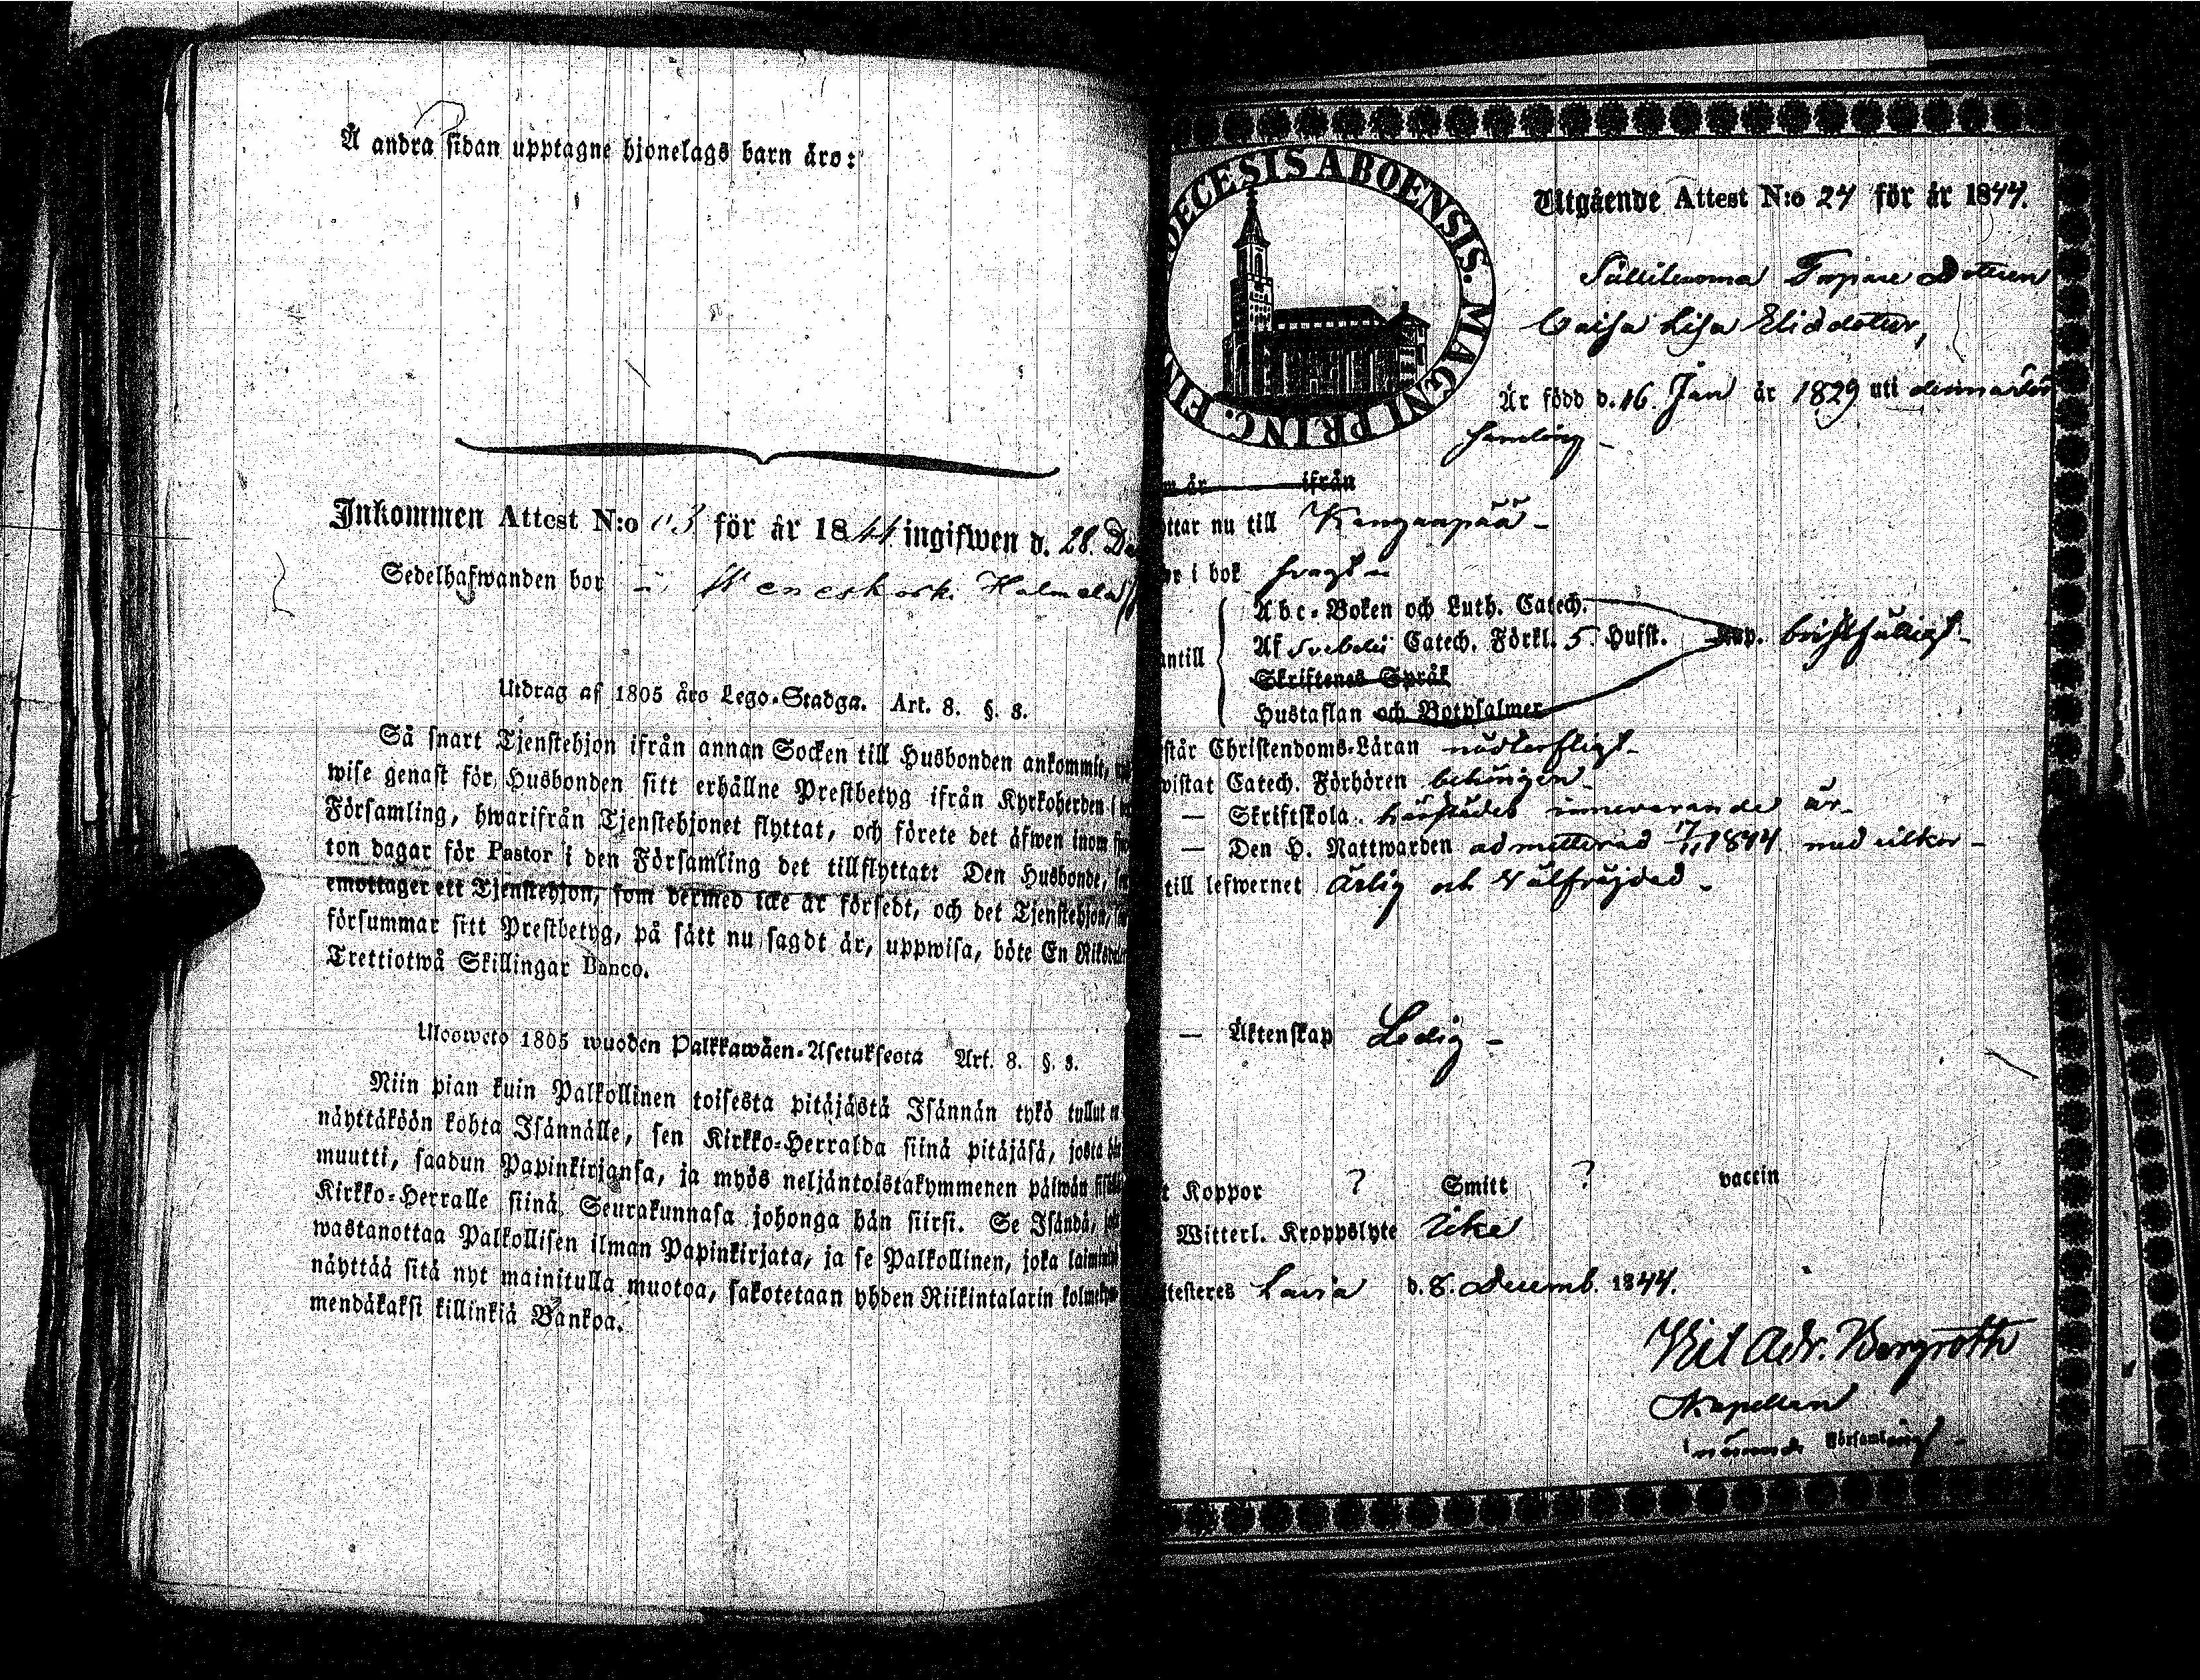 Å andra sidan upptagne hjonelags barn äro:
Inkommen Attest N:o 03 för år 1844 ingifwen d. 28. De
Sedelhafwanden bor
Utdrag af 1805 års Lego-Stadga. Art. 8. §. 3.
Så snart Tjenstehjon ifrån annan Socken till Husbonden ankommit,
wise genast för Husbonden sitt erhållne Prestbetyg ifrån Kyrkoherden i
Församling, hwarifrån Tjenstehjonet flyttat, och förete det äfwen inom
ton dagar för Pastor i den Församling det tillflyttat: Den Husbonde,
emottager ett Tjenstehjon, som dermed icke är försedt, och det Tjenstehjon,
försummar sitt Prestbetyg, på sätt nu sagdt är, uppwisa, böte En Riksdaler
Trettiotwå Skillingar Banco.
Ulosweto 1805 wuoden Palkkawäen-Asetuksesta Art. 8. §. 3.
Niin pian kuin Palkollinen toisesta pitäjästä Isännän tykö tullut on
näyttäköön kohta Isännälle, sen Kirkko-Herralda siinä pitäjäsä, josta hän
muutti, saadun Papinkirjansa, ja myös neljäntoistakymmenen päiwän sisällä
Kirkko-Herralle siinä Seurakunnasa johonga hän siirsi. Se Isändä, joka
wastanottaa Palkollisen ilman Papinkirjata, ja se Palkollinen, joka laimin
näyttää sitä nyt mainitulla muotoa, sakotetaan yhden Riikintalarin kolmekym
mendäkaksi killinkiä Bankoa.
DECESIS ABOENSIS. MAGNI PRINC. FIN
Utgående Attest N:o 24 för år 1844.
Torpare Dottren
Caisa Lisa Elisdotter,
Är född d. 16 Jan år 1829 uti denna
församling -
m år ifrån
ttar nu till Kanganpää -
r i bok svagt -
Abc-Boken och Luth. Catech.
ntill Af Svebelii Catech. Förkl. 5 Hufst. Kap. bristfälligt -
Skriftenes Språk
Hustaflan och Botpsalmer
står Christendoms-Läran nödtorftigt -
wistat Catech. Förhören behörigen -
— Skriftskola härstädes innevarande år -
— Den H. Nattwarden admitterad 17/1 1844. med vilkor -
till lefwernet Ärlig och Välfräjdad -
— Äktenskap Ledig -
t Koppor ? Smitt ? vaccin
Witterl. Kroppslyte Icke
ttesteres Lavia d. 8. Decemb. 1844.
Vict Adr. Bergroth
Kapellan
Församling -